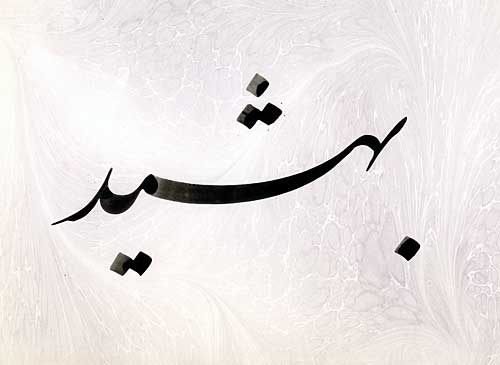 بهشید